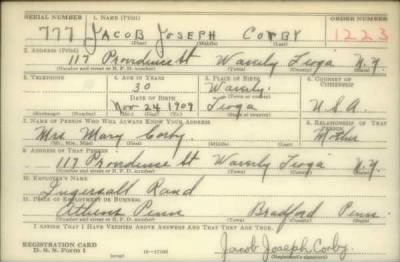 SERIAL NUMBER 1. NAME (Print) ORDER NUMBER
777 JACOB JOSEPH CORBY 1223
(First) (Middle) (Last)
2. ADDRESS (Print)
117 Providence St Waverly Tioga N.Y.
(Number and street or R. F. D. number) (Town) (County) (State)
3. TELEPHONE 4. AGE IN YEARS 5. PLACE OF BIRTH 6. COUNTRY OF CITIZENSHIP
30 Waverly
DATE OF BIRTH (Town or county)
Nov 24 1909 Tioga U.S.A.
(Mo.) (Day) (Yr.) (State or country)
7. NAME OF PERSON WHO WILL ALWAYS KNOW YOUR ADDRESS 8. RELATIONSHIP OF THAT PERSON
Mrs. Mary Corby Mother
(Mr., Mrs., Miss) (First) (Middle) (Last)
9. ADDRESS OF THAT PERSON
117 Providence St Waverly Tioga N.Y.
(Number and street or R. F. D. number) (Town) (County) (State)
10. EMPLOYER'S NAME
Ingersoll Rand
11. PLACE OF EMPLOYMENT OR BUSINESS
Athens Penn Bradford Penn
(Number and street or R. F. D. number) (Town) (County) (State)
I AFFIRM THAT I HAVE VERIFIED ABOVE ANSWERS AND THAT THEY ARE TRUE.
REGISTRATION CARD
D. S. S. Form 1 16—17105 Jacob Joseph Corby
(Registrant's signature)